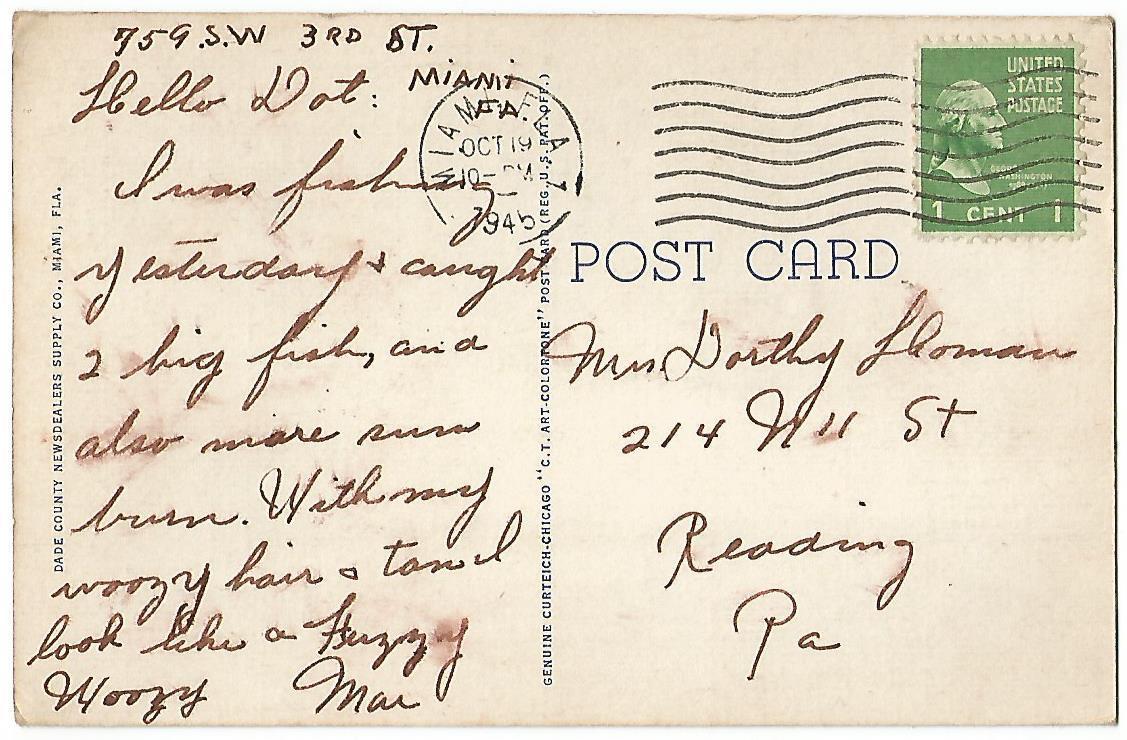 759 S.W 3RD ST.
MIAMI
FA.
Hello Dot:
I was fishing
yesterday & caught
2 big fish, and
also more sun
burn. With my
woozy hair & tan I
look like a Fuzzy
Woozy Mae
DADE COUNTY NEWSDEALERS SUPPLY CO., MIAMI, FLA.
GENUINE CURTEICH-CHICAGO "C.T. ART-COLORTONE" POST CARD (REG. U.S. PAT. OFF.)
MIAMI, FLA.
OCT 19
10- PM
1945
UNITED
STATES
POSTAGE
GEORGE
WASHINGTON
1 CENT 1
POST CARD
Mrs Dorthy Homan
214 N 11 St
Reading
Pa